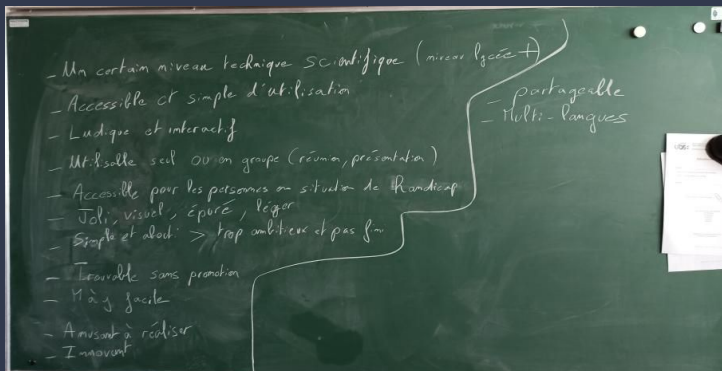 - Un certain niveau technique scientifique (niveau lycée +)
- Accessible et simple d'utilisation
- Ludique et interactif
- Utilisable seul ou en groupe (réunion, présentation)
- Accessible pour les personnes en situation de handicap
- Joli, visuel, épuré, léger
- Simple et abouti > trop ambitieux et pas fini
-
- Trouvable sans promotion
- Màj facile
- Amusant à réaliser
- Innovant
- partageable
- Multi-langues